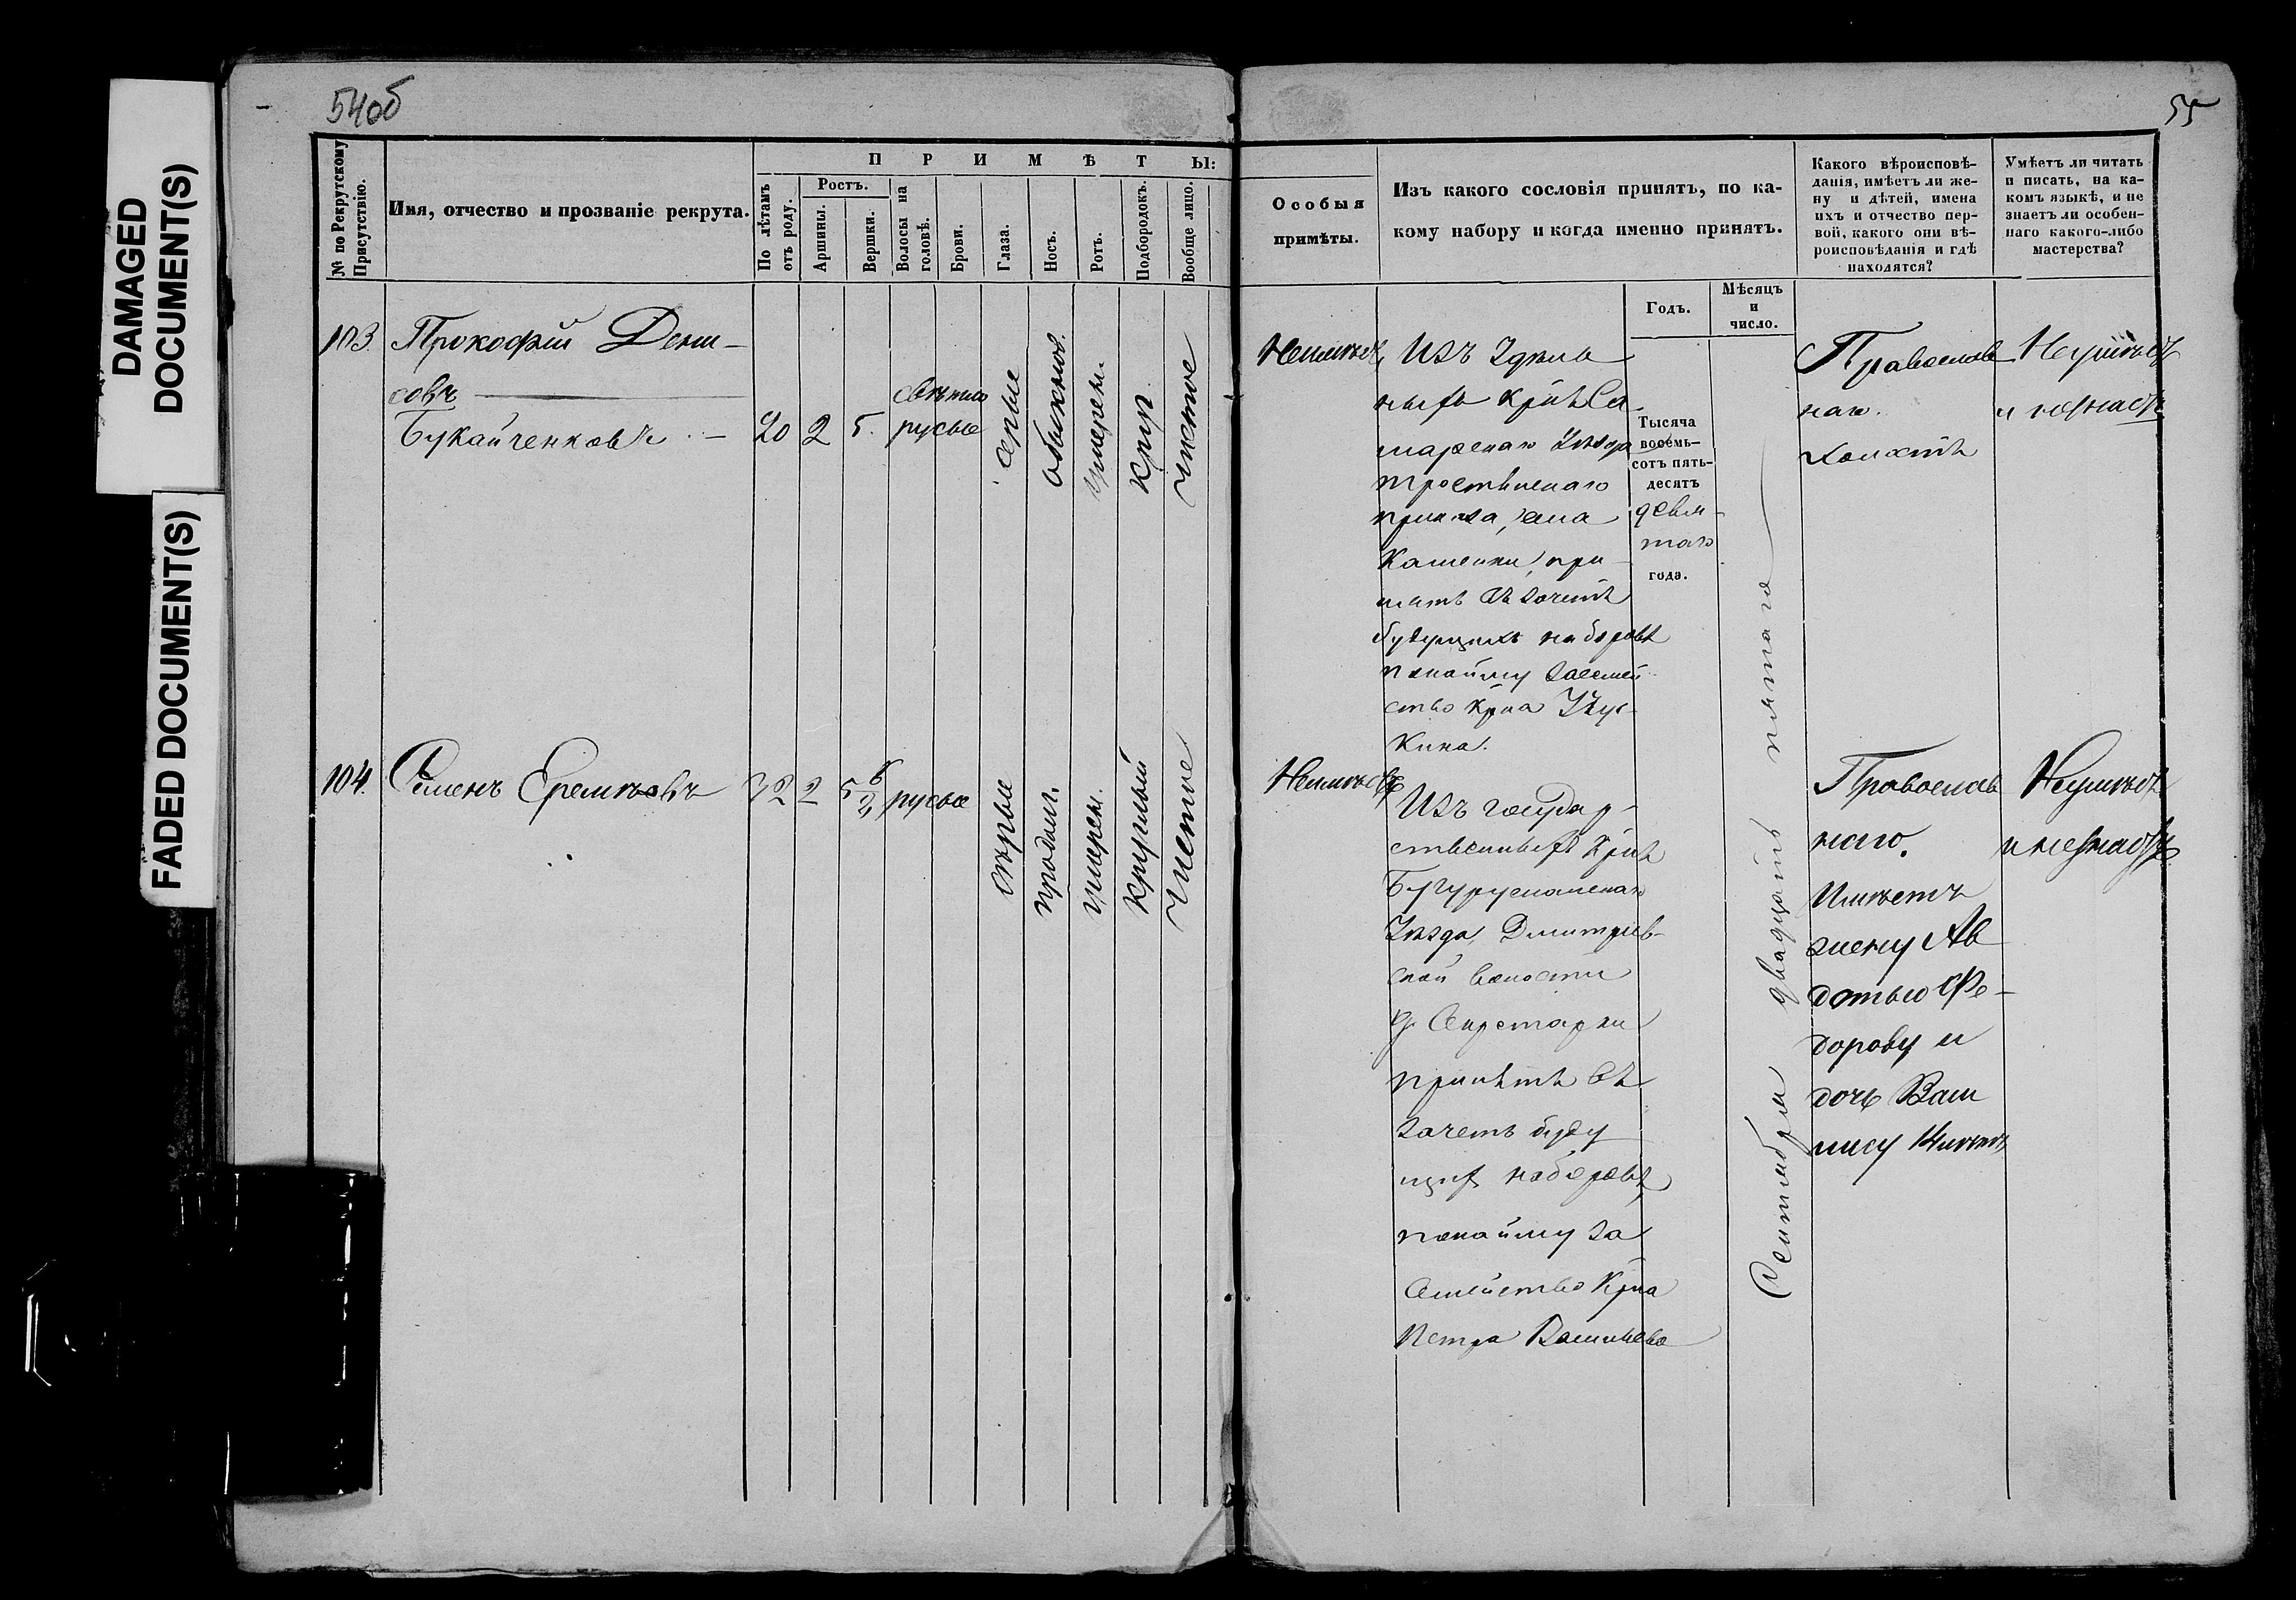 DAMAGED
DOCUMENT(S)
FADED DOCUMENT(S)
54об
55
№ по Рекрутскому
Присутствію.
Имя, отчество и прозваніе рекрута.
ПРИМѢТЫ:
По лѣтамъ
отъ роду.
Ростъ.
Аршины.
Вершки.
Волосы на
головѣ.
Брови.
Глаза.
Носъ.
Ротъ.
Подбородокъ.
Вообще лицо.
Особыя
примѣты.
Изъ какого сословія принятъ, по ка-
кому набору и когда именно принятъ.
Годъ.
Мѣсяцъ
и
число.
Какого вѣроисповѣ-
данія, имѣетъ ли же-
ну и дѣтей, имена
ихъ и отчество пер-
вой, какого они вѣ-
роисповѣданія и гдѣ
находятся?
Умѣетъ ли читать
и писать, на ка-
комъ языкѣ, и не
знаетъ ли особен-
наго какого-либо
мастерства?
103.
Прокофій Дени-
совъ
Букайченковъ
20
2
5.
свѣтло
русые
серые
обыкнов.
умерен.
кругл.
чистое
Неимѣетъ
Изъ
Са
марскаго Уѣзда
приказа, села
Каменки, при
нятъ въ зачетъ
будущихъ наборовъ
понайму засемей
ство кр-на
кина.
Тысяча
восемь-
сотъ пять-
десятъ
девя-
таго
года.
Сентября двадцать пятаго
Православ
наго.
Холостъ
Неумѣетъ
и незнаетъ
104.
Семенъ Еремѣевъ
32
2
5
русые
сѣрые
продолг.
умерен.
круглый
чистое
Неимѣетъ
Изъ государ-
ственныхъ кр-нъ
Бугурусланскаго
Уѣзда, Дмитріев-
ской волости
д. Секретарки
принятъ въ
зачетъ буду
щихъ наборовъ,
понайму за
семейство кр-на
Петра
Православ
наго.
Имѣетъ
жену Ав
дотью Фе-
дорову и
дочь Васи
лису
Неумѣетъ
и незнаетъ